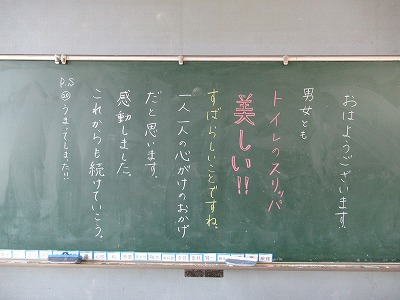 おはようございます。
男女とも
トイレのスリッパ
美しい!!
すばらしいことですね。
一人一人の心がけのおかげ
だと思います。
感動しました。
これからも続けていこう。
P.S
うまってしまった!!